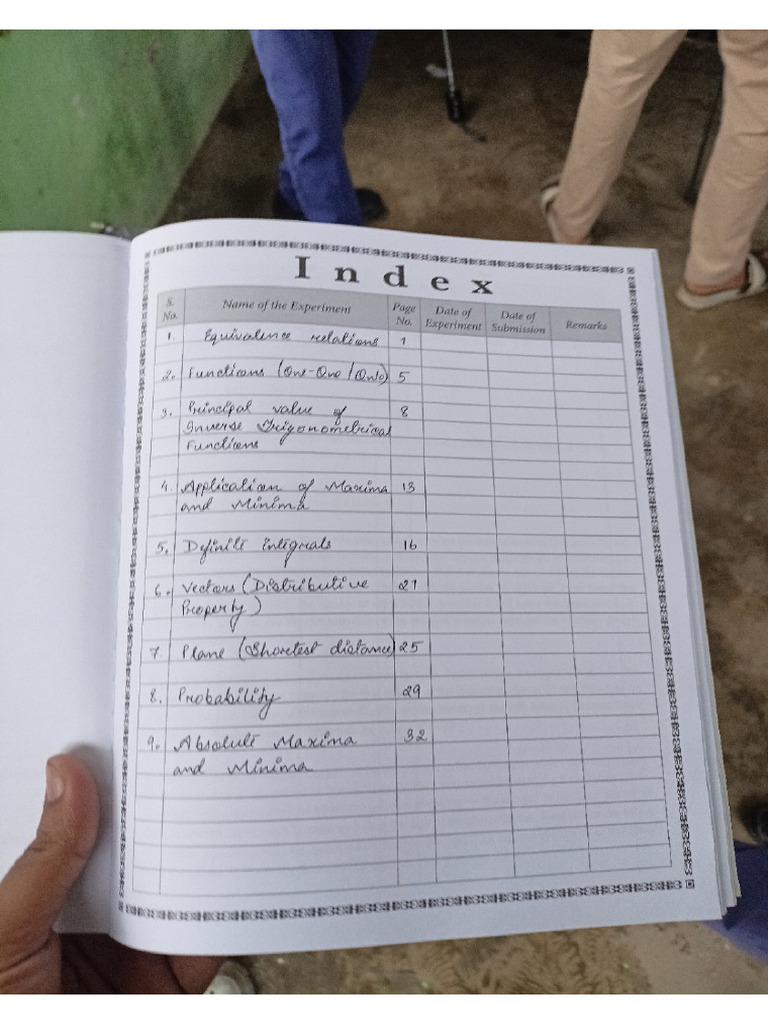 Index
S. No. Name of the Experiment Page No. Date of Experiment Date of Submission Remarks
1. Equivalence relations 1
2. Functions (One-One / Onto) 5
3. Principal value of 8
Inverse Trigonometrical
Functions
4. Application of Maxima 13
and Minima
5. Definite integrals 16
6. Vectors (Distributive 21
Property)
7. Plane (Shortest distance) 25
8. Probability 29
9. Absolute Maxima 32
and Minima